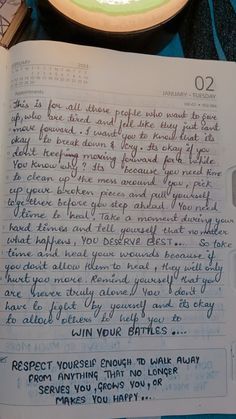 02
JANUARY - TUESDAY
Appointments
This is for all those people who want to give
up, who are tired and feel like they just can't
move forward. I want you to know that its
okay to break down & cry. Its okay if you
don't keeping moving forward for a while
You know why? Its because you need time
to clean up the mess around you, pick
up your broken pieces and pull yourself
together before you step ahead. You need
time to heal. Take a moment during your
hard times and tell yourself that no matter
what happens, YOU DESERVE BEST.... So take
time and heal your wounds because if
you don't allow them to heal, they will only
hurt you more. Remind yourself that you
are never truly alone. You don't
have to fight by yourself and its okay
to allow others to help you to
WIN YOUR BATTLES ....
RESPECT YOURSELF ENOUGH TO WALK AWAY
FROM ANYTHING THAT NO LONGER
SERVES YOU, GROWS YOU, OR
MAKES YOU HAPPY...